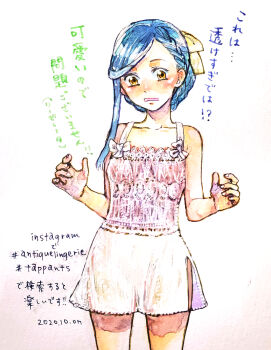 これは…
透けすぎでは!?
可愛いので
問題
ございません!!
instagram
で
#antiquelingerie
#tappants
で検索すると
楽しいです!!
2020.10.on